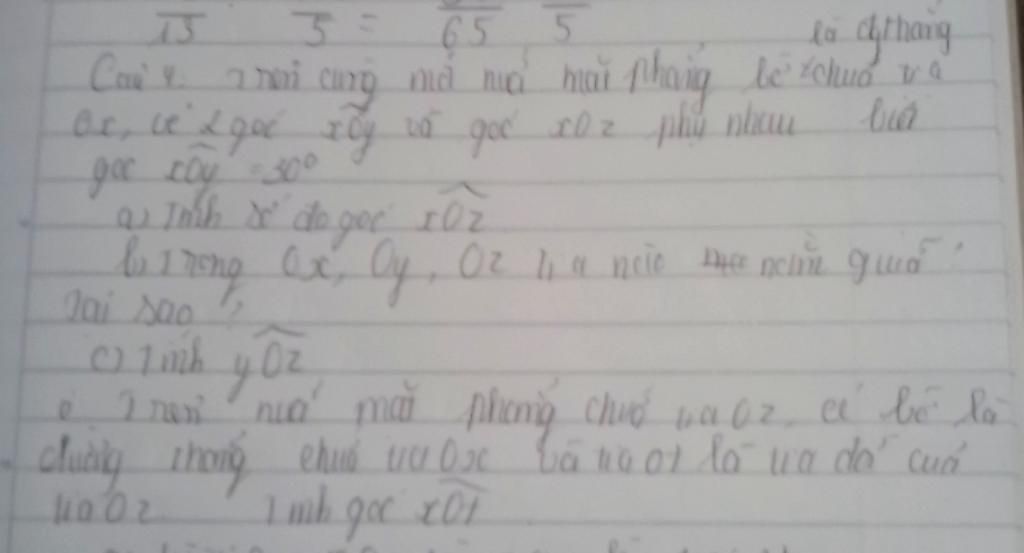 15 5 = 65 5 là đ thẳng
Câu 4. Trên cùng một nửa mặt phẳng bờ chứa
Ox, 2 góc xOy và góc xOz phụ nhau biết
góc xOy = 30°
a) Tính số đo góc xOz
b) Trong Ox, Oy, Oz tia nào nằm giữa
Tại sao?
c) Tính yOz
Trên nửa mặt phẳng chứa tia Oz, có bờ là
đường thẳng chứa tia Ox là tia đối của
tia Oz Tính góc xOt